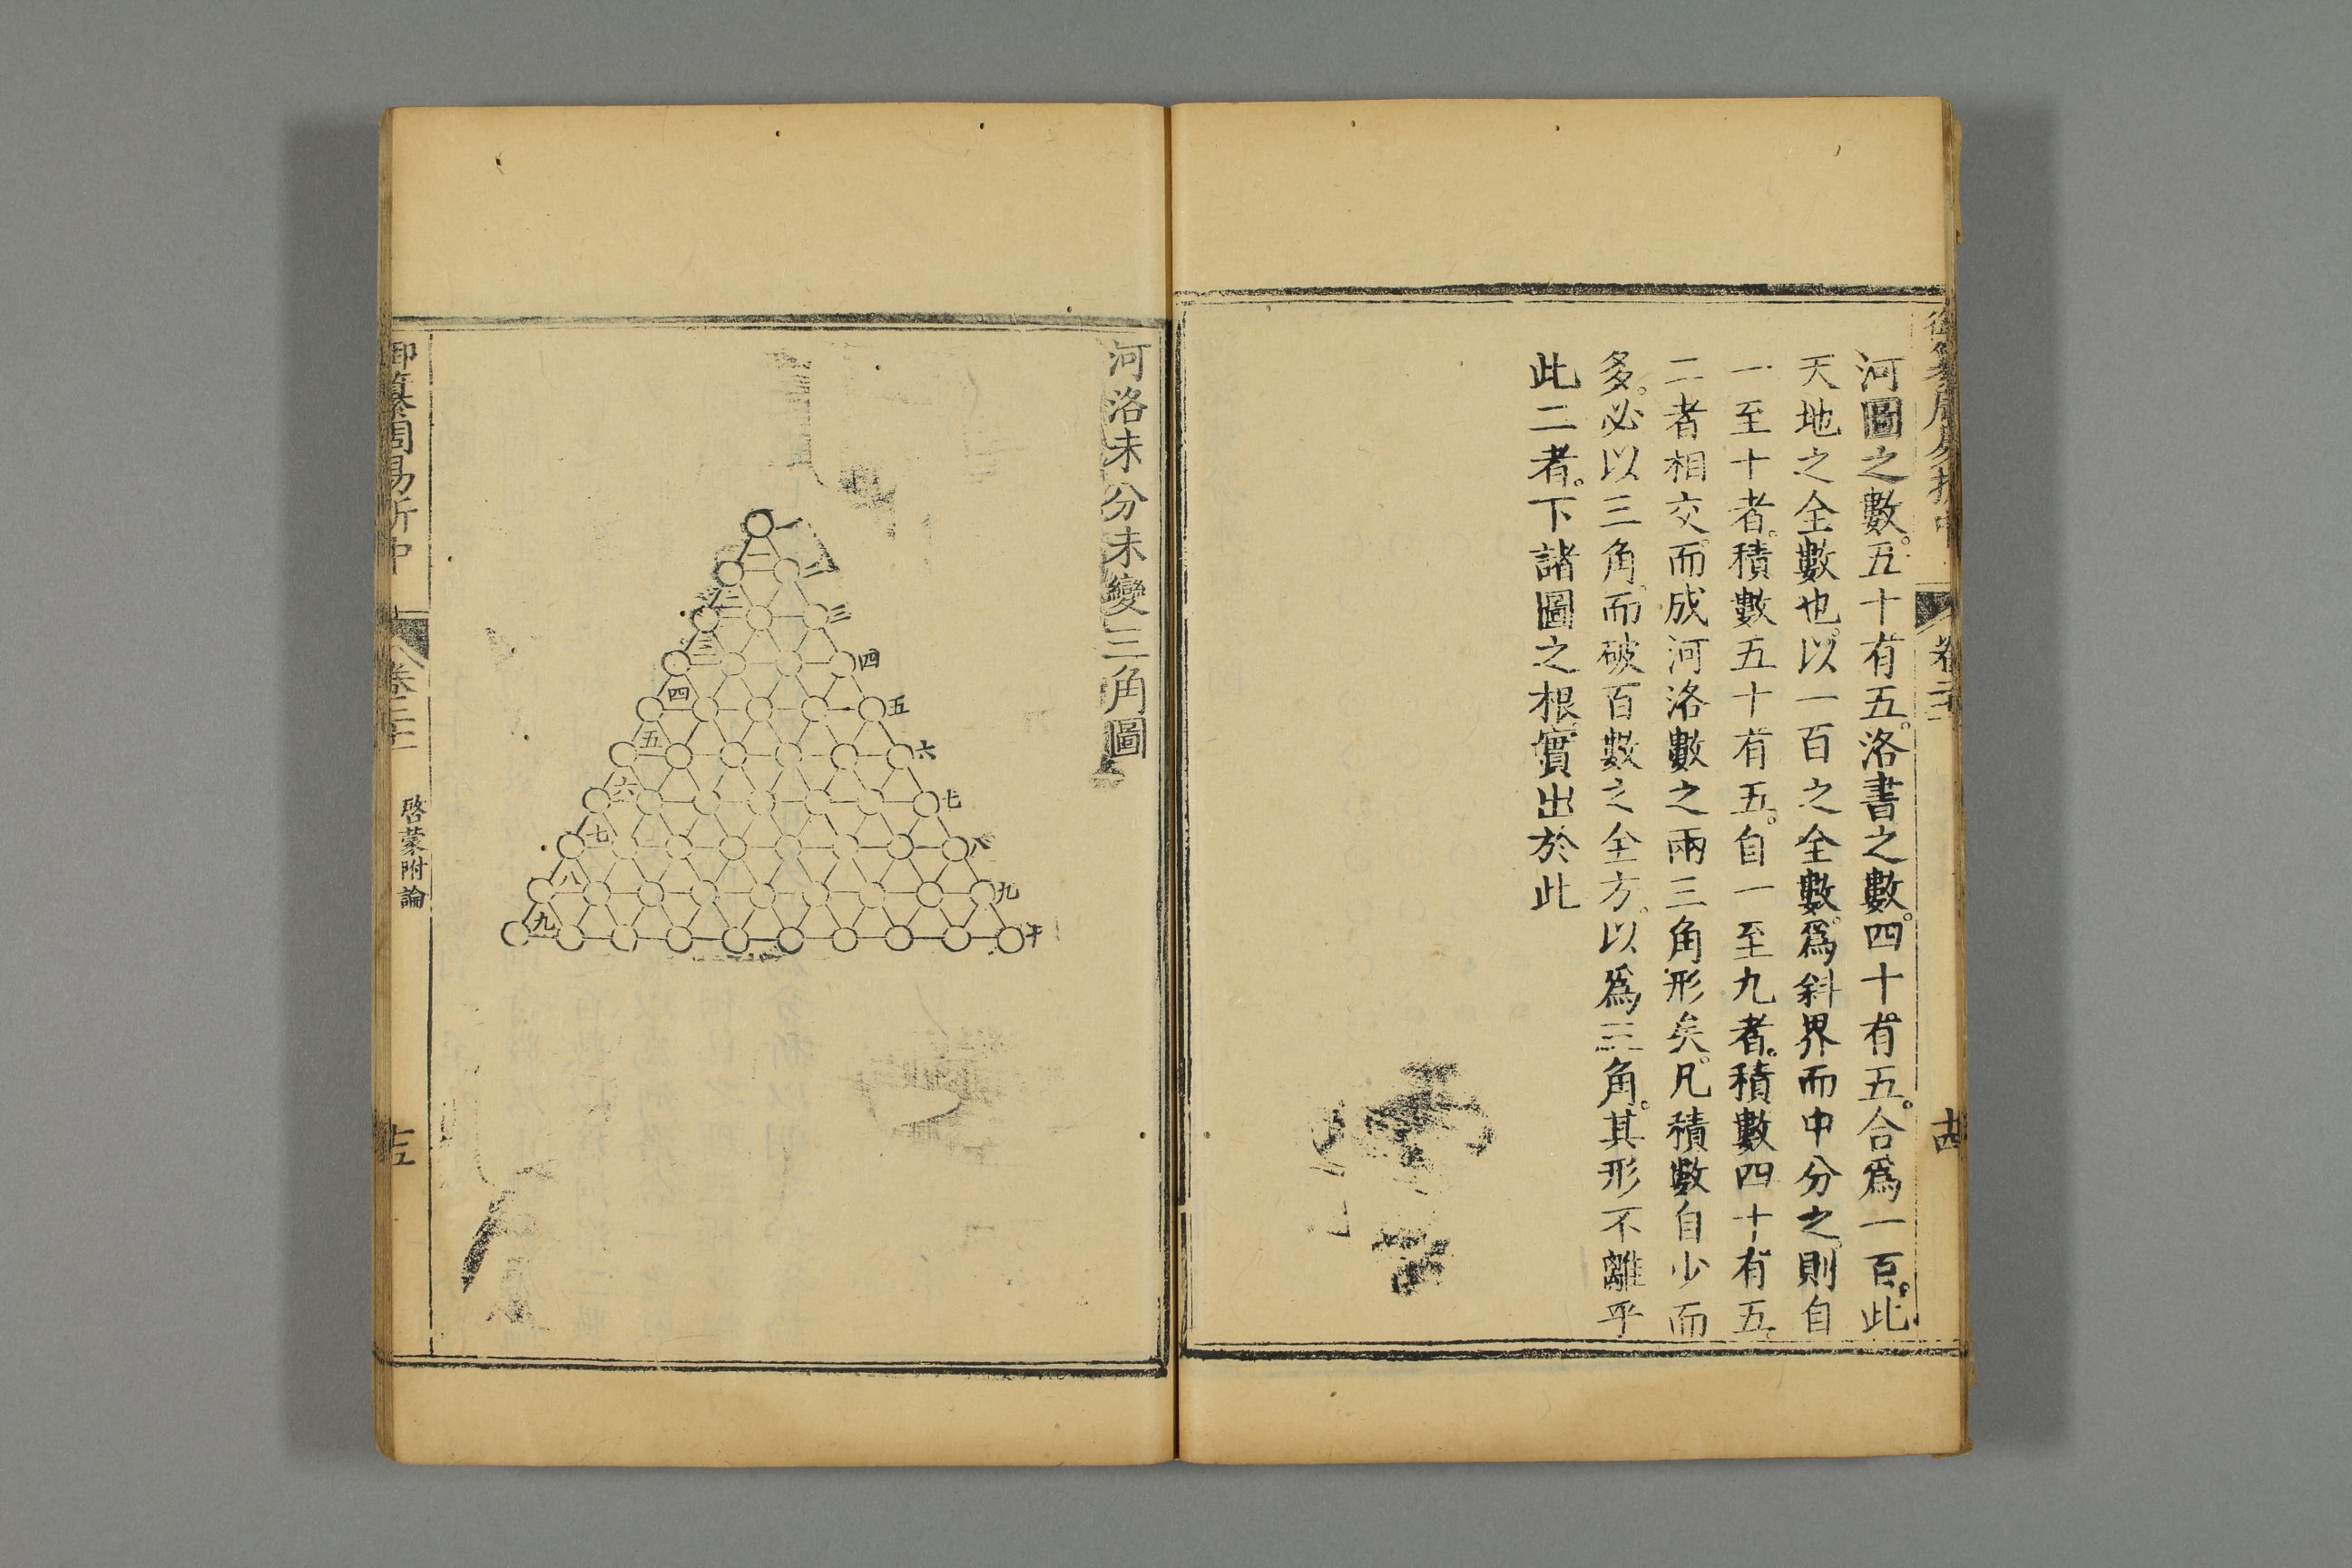 河圖之數。五十有五。洛書之數。四十有五。合爲一百。此
天地之全數也。以一百之全數。爲斜界而中分之。則自
一至十者。積數五十有五。自一至九者。積數四十有五。
二者相交。而成河洛數之兩三角形矣。凡積數自少而
多。必以三角。而破百數之全方。以爲三角。其形不離乎
此二者。下諸圖之根。實出於此
卷二十一
十四
河洛未分未變三角圖
二
三
四
五
六
七
八
九
十
一
二
三
四
五
六
七
八
九
御纂周易折中
卷二十一
啓蒙附論
十五